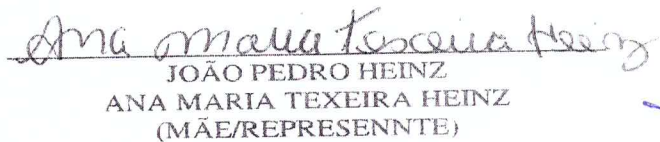 Ana Maria Texeira Heinz
JOÃO PEDRO HEINZ
ANA MARIA TEXEIRA HEINZ
(MÃE/REPRESENNTE)